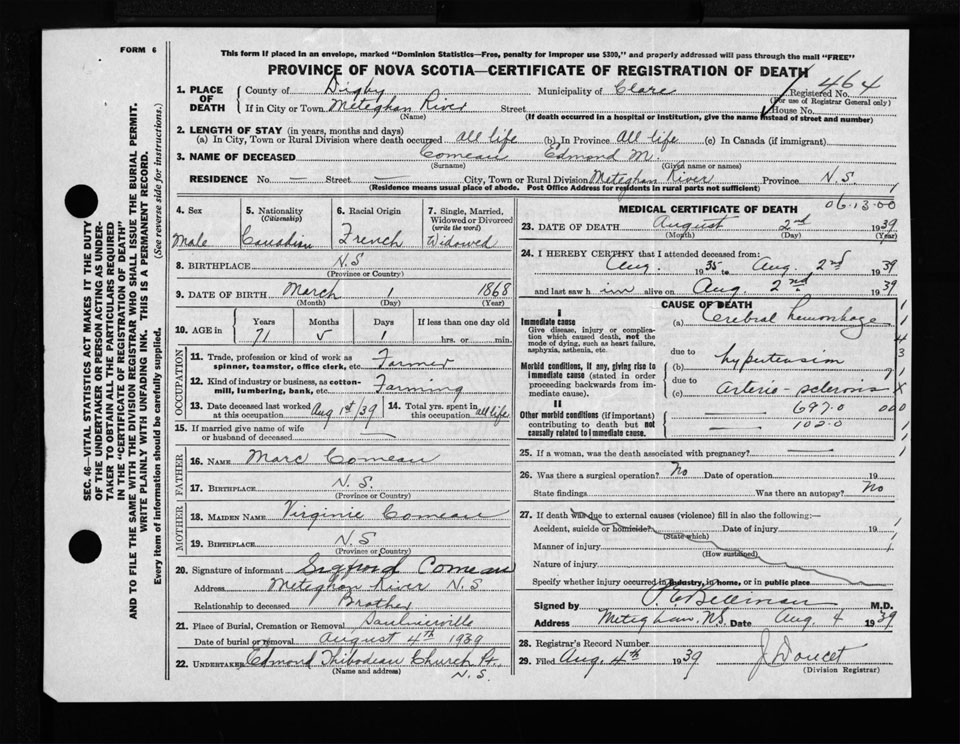 FORM 6
This form if placed in an envelope, marked "Dominion Statistics—Free, penalty for improper use $300," and properly addressed will pass through the mail "FREE"
PROVINCE OF NOVA SCOTIA—CERTIFICATE OF REGISTRATION OF DEATH
464
1. PLACE OF DEATH
County of Digby Municipality of Clare Registered No.
(For use of Registrar General only)
If in City or Town Meteghan River Street House No.
(Name) (If death occurred in a hospital or institution, give the name instead of street and number)
2. LENGTH OF STAY (in years, months and days)
(a) In City, Town or Rural Division where death occurred all life (b) In Province All life (c) In Canada (if immigrant)
3. NAME OF DECEASED Comeau Edmond M.
(Surname) (Given name or names)
RESIDENCE No. — Street — City, Town or Rural Division Meteghan River Province N.S.
(Residence means usual place of abode. Post Office Address for residents in rural parts not sufficient)
SEC. 46—VITAL STATISTICS ACT MAKES IT THE DUTY
OF THE UNDERTAKER OR PERSON ACTING AS UNDER-
TAKER TO OBTAIN ALL THE PARTICULARS REQUIRED
IN THE "CERTIFICATE OF REGISTRATION OF DEATH"
AND TO FILE THE SAME WITH THE DIVISION REGISTRAR WHO SHALL ISSUE THE BURIAL PERMIT.
WRITE PLAINLY WITH UNFADING INK. THIS IS A PERMANENT RECORD.
Every item of information should be carefully supplied. (See reverse side for instructions.)
4. Sex 5. Nationality (Citizenship) 6. Racial Origin 7. Single, Married, Widowed or Divorced (write the word)
Male Canadian French Widowed
8. BIRTHPLACE N.S
(Province or Country)
9. DATE OF BIRTH March 1 1868
(Month) (Day) (Year)
10. AGE in Years Months Days If less than one day old
71 5 1 hrs. or min.
OCCUPATION
11. Trade, profession or kind of work as spinner, teamster, office clerk, etc. Farmer
12. Kind of industry or business, as cotton-mill, lumbering, bank, etc. Farming
13. Date deceased last worked at this occupation Aug 1st/39 14. Total yrs. spent in this occupation all life
15. If married give name of wife or husband of deceased —
FATHER
16. NAME Marc Comeau
17. BIRTHPLACE N.S.
(Province or Country)
MOTHER
18. MAIDEN NAME Virginie Comeau
19. BIRTHPLACE N.S
(Province or Country)
20. Signature of informant Sigfroid Comeau
Address Meteghan River N.S
Relationship to deceased Brother
21. Place of Burial, Cremation or Removal Saulnierville
Date of burial or removal August 4th 1939
22. UNDERTAKER Edmond Thibodeau Church Pt.
(Name and address) N.S.
06-13-00 1
MEDICAL CERTIFICATE OF DEATH
23. DATE OF DEATH August 2nd 1939
(Month) (Day) (Year)
24. I HEREBY CERTIFY that I attended deceased from:
Aug. 1935 to Aug. 2nd 1939
and last saw him alive on Aug. 2nd 1939
CAUSE OF DEATH
I
Immediate cause
Give disease, injury or complication which caused death, not the mode of dying, such as heart failure, asphyxia, asthenia, etc.
(a) Cerebral hemorrhage
due to
Morbid conditions, if any, giving rise to immediate cause (stated in order proceeding backwards from immediate cause).
hypertension
due to
(c) arterio-sclerosis
II
Other morbid conditions (if important) contributing to death but not causally related to immediate cause.
697.0 000
102.0
25. If a woman, was the death associated with pregnancy? —
26. Was there a surgical operation? No Date of operation 19
State findings Was there an autopsy? No
27. If death was due to external causes (violence) fill in also the following:—
Accident, suicide or homicide? Date of injury 19
(State which)
Manner of injury
(How sustained)
Nature of injury
Specify whether injury occurred in industry, in home, or in public place
Signed by M.D.
Address Meteghan, N.S. Date Aug 4 1939
28. Registrar's Record Number
29. Filed Aug. 4th 1939 J Doucet
(Division Registrar)